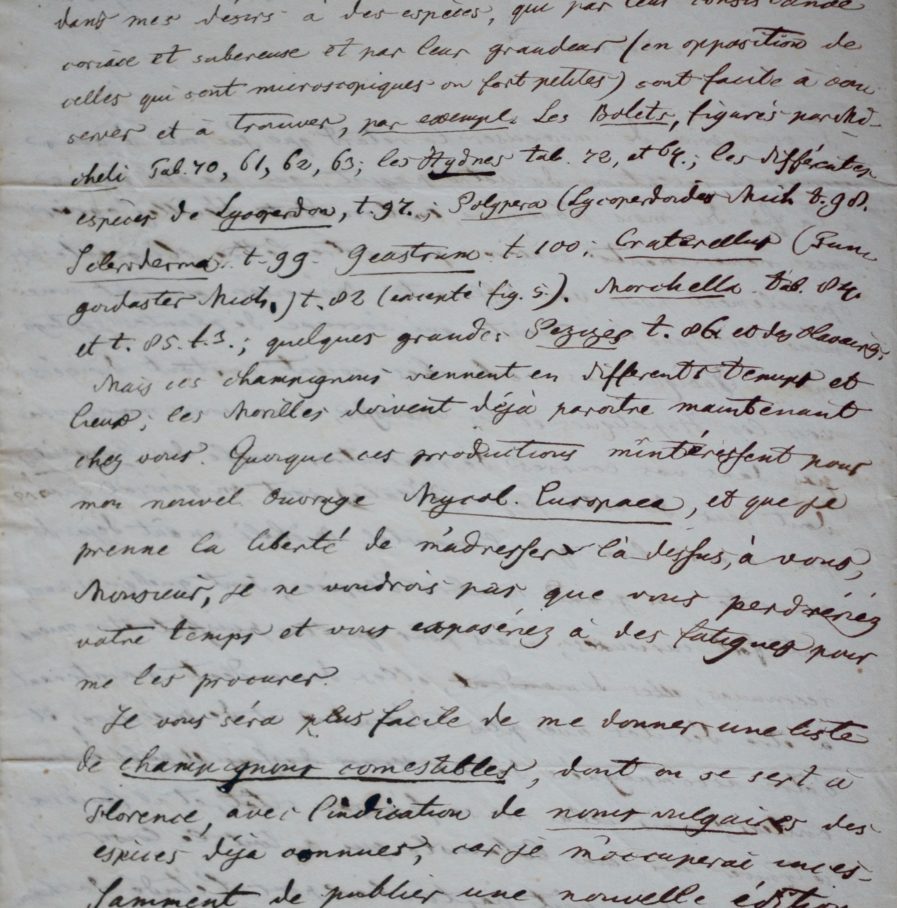 dans mes désirs à des espèces, qui par leur consistance
coriace et subereuse et par leur grandeur (en opposition de
celles qui sont microscopiques ou fort petites) sont facile à con-
server et à trouver, par exempl. Les Bolets, figurés par Mi-
cheli Tab. 70, 61, 62, 63; les Hydnes tab. 72, et 64.; les différentes
espèces de Lycoperdon, t. 97.; Polypera (Lycoperdoides Mich t. 98.
Scleroderma t. 99. Geastrum t. 100; Craterellus (Fun-
goidaster Mich.) t. 82 (excepté fig. 5). Morchella tab. 84
et t. 85. f. 3.; quelques grandes Pezizes t. 86 et des Clavaires.
Mais ces champignons viennent en differents temps et
lieux; les Morilles doivent déjà paroitre maintenant
chez vous. Quoique ces productions m'intéressent pour
mon nouvel Ouvrage Mycol. Europaea, et que je
prenne la liberté de m'adresser là dessus, à vous,
Monsieur, je ne voudrois pas que vous perdrériéz
votre temps et vous exposériez à des fatigues pour
me les procurer.
Il vous séra plus facile de me donner une liste
de champignons comestibles, dont on se sert à
Florence, avec l'indication de noms vulgaires des
espèces déja connues, car je m'occuperai inces-
samment de publier une nouvelle édition